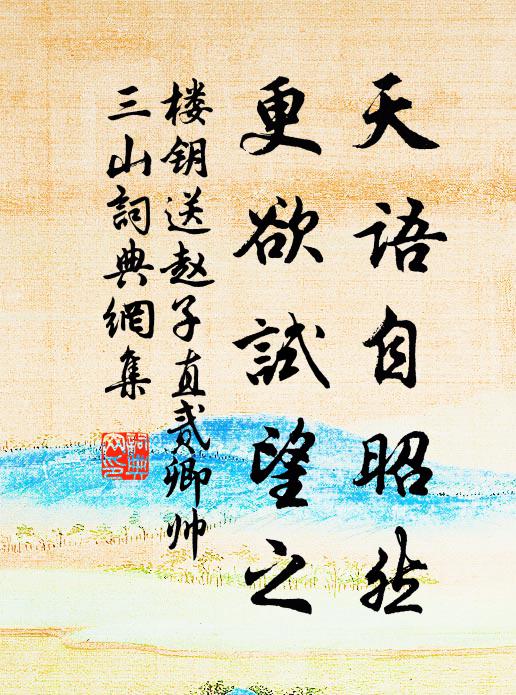 天语自昭然
更欲試望之
楼钥送赵子直贰卿帅
三山詞典網集